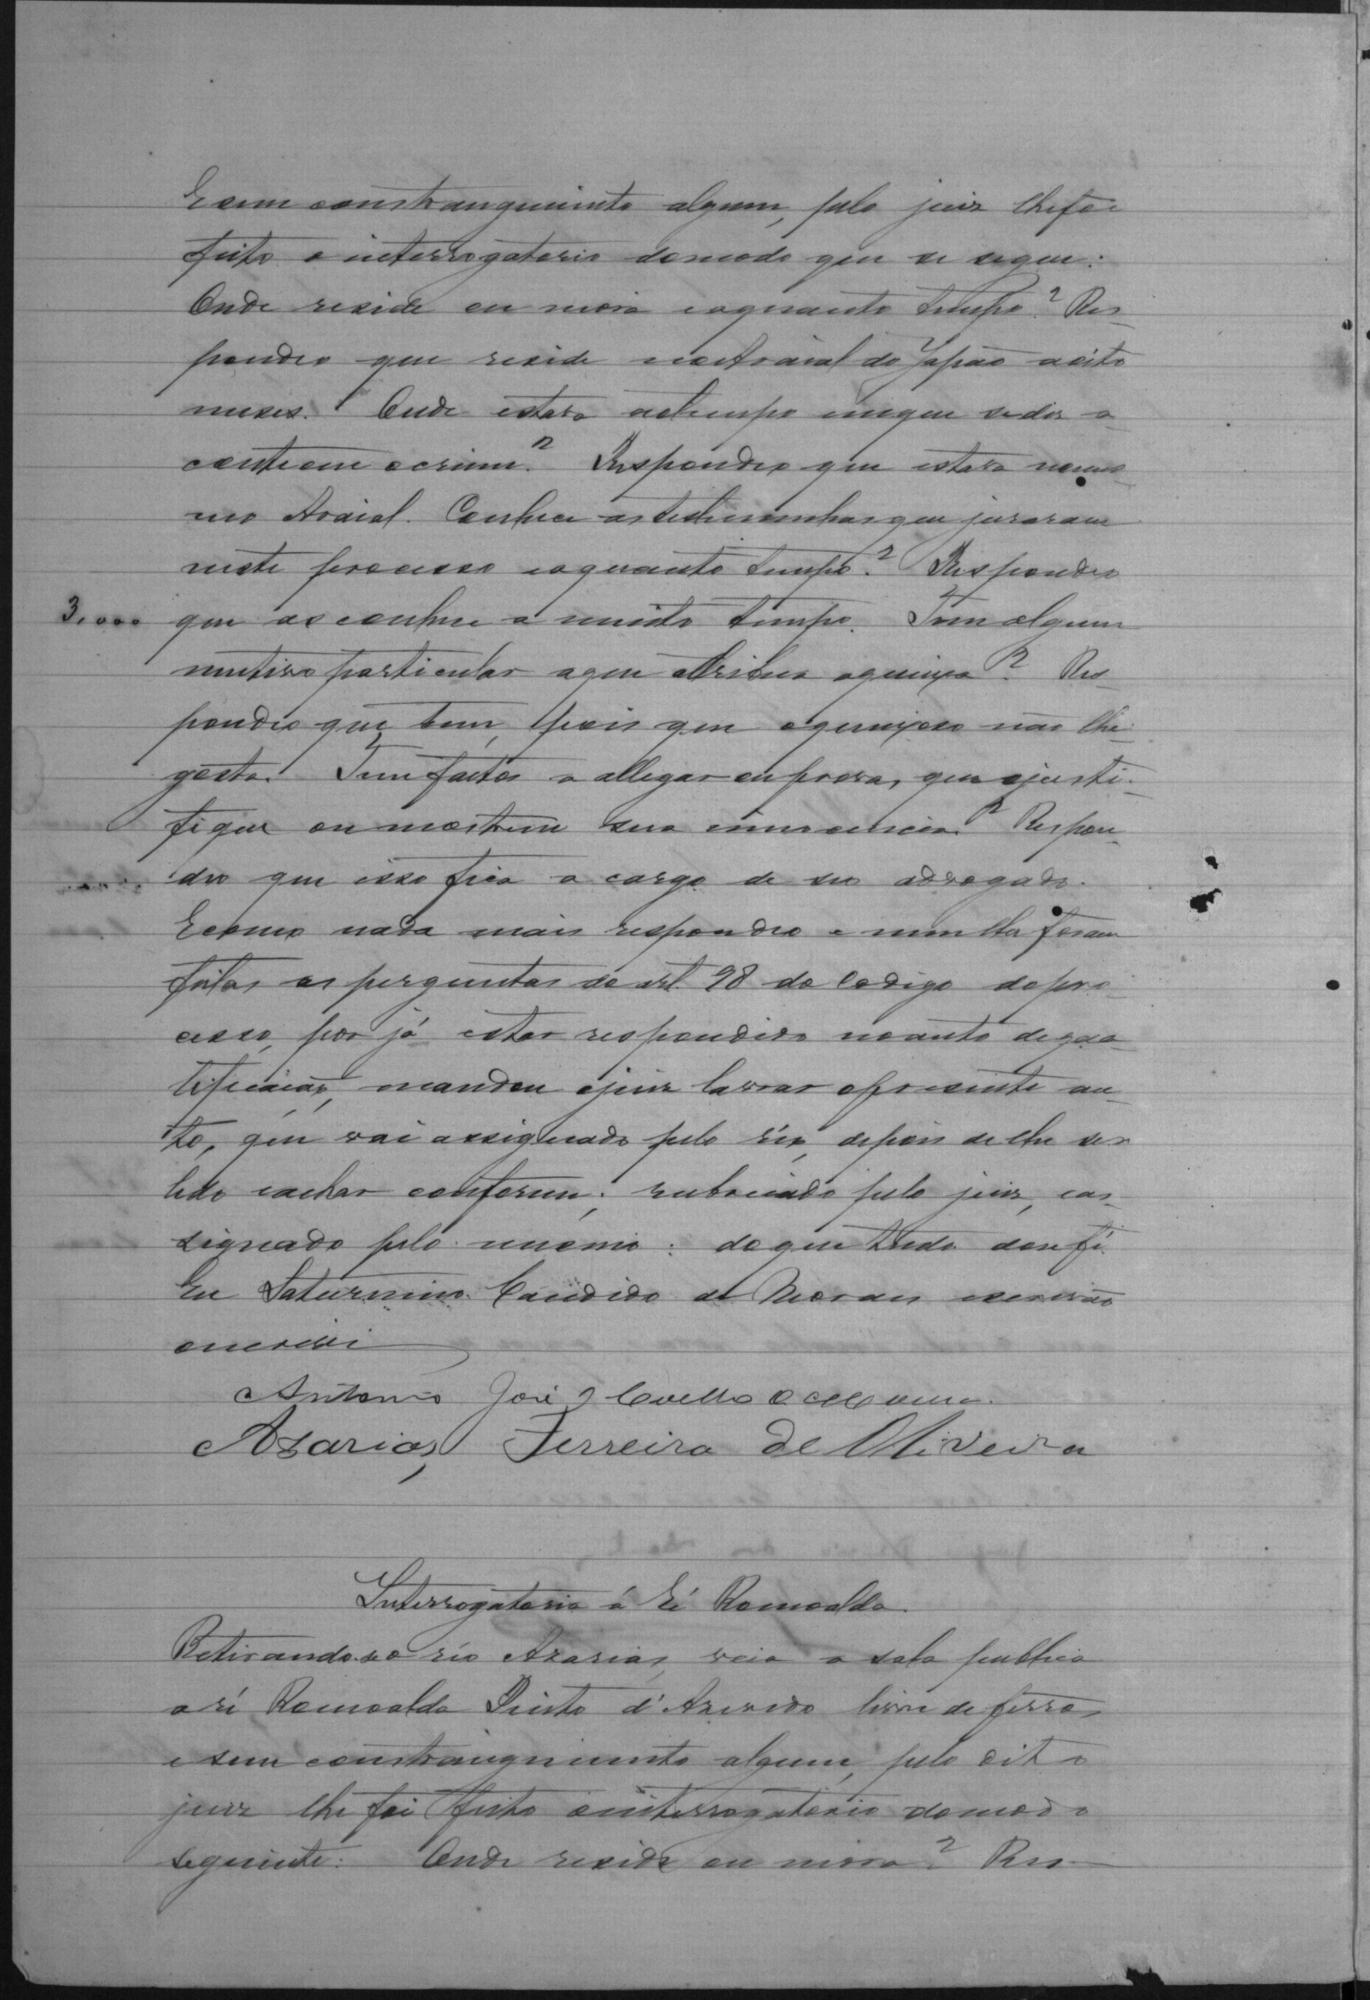 E sem constrangimento algum, pelo juiz lhe foi
feito o interrogatorio do modo que se segue:
Onde reside ou mora e a quanto tempo? Res-
pondeo que reside no Arraial do Japão a oito
meses. Onde estava ao tempo em que se diz a-
conteceu o crime? Respondeo que estava no mes-
mo Araial. Conhece as testemunhas que juraram
neste processo e a quanto tempo? Respondeo
3,000 que as conhece a muito tempo. Tem algum
motivo particular a que attribua a queixa? Res-
pondeo que tem, pois que o queixoso não lhe
gosta. Tem factos a allegar ou provas, que o justi-
fique ou mostrem sua innocencia? Respon-
deo que isso fica a cargo de seo advogado.
E como nada mais respondeo e nem lha foram
feitas as perguntas do art. 98 do Codigo do pro-
cesso, por já estar respondido no auto de qua-
lificação, mandou o juiz lavrar o presente au-
to, que vai assignado pelo réo, depois de lhe ser
lido e achar conforme; rubricado pelo juiz, e as-
signado pelo mesmo: do que tudo dou fé.
Eu Saturnino Candido de Moraes escrivão
o escrevi
Antonio José
Azarias Ferreira de Oliveira
Interrogatorio á Ré Romoalda.
Retirando-se o réo Azarias, veio a sala publica
a ré Romoalda Pinto d'Azevedo livre de ferros
e sem constrangimento algum, pelo dito
juiz lhe foi feito o interrogatorio do modo
seguinte: Onde reside ou mora? Res-